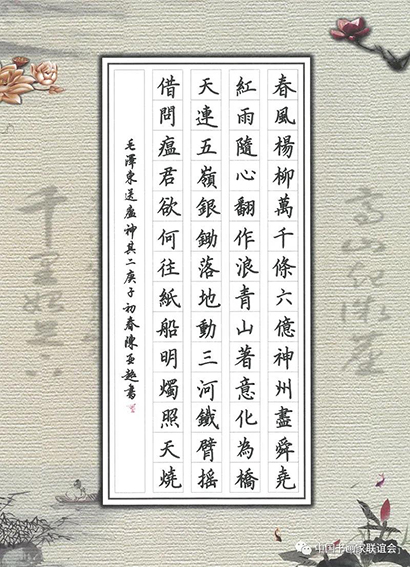 春風楊柳萬千條六億神州盡舜堯
紅雨隨心翻作浪青山著意化為橋
天連五嶺銀鋤落地動三河鐵臂摇
借問瘟君欲何往紙船明燭照天燒
毛澤東送瘟神其二庚子初春陳書
中国书画家联谊会